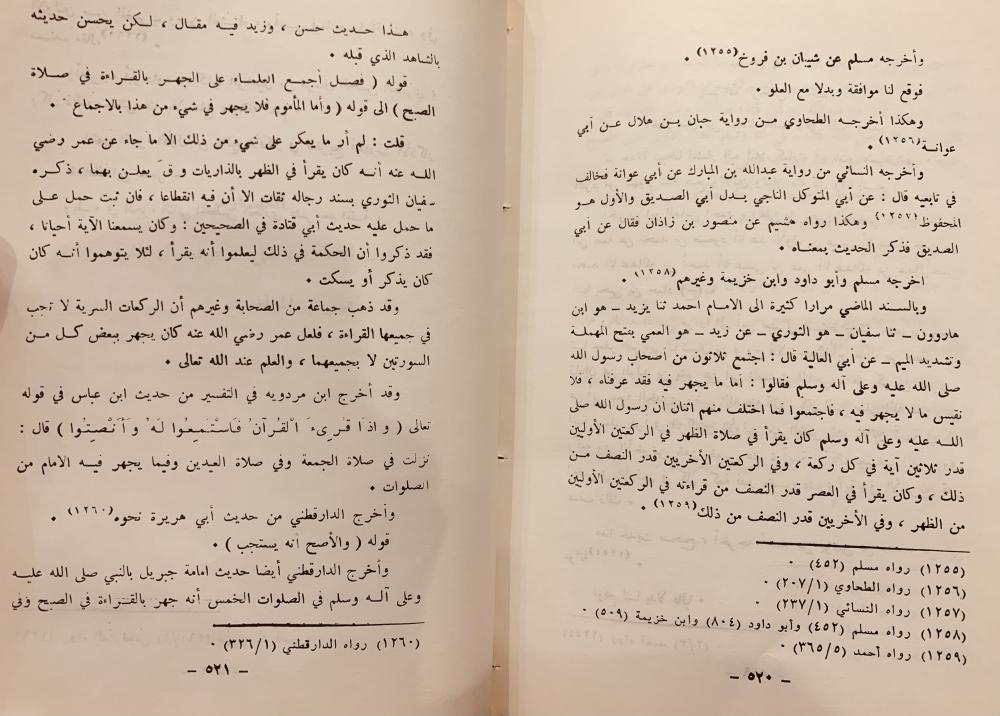 وأخرجه مسلم عن شيبان بن فروخ(١٢٥٥) .
فوقع لنا موافقة وبدلا مع العلو .
وهكذا أخرجه الطحاوي من رواية حبان بن هلال عن أبي
عوانة(١٢٥٦) .
وأخرجه النسائي من رواية عبدالله بن المبارك عن أبي عوانة فخالف
في تابعيه قال : عن أبي المتوكل الناجي بدل أبي الصديق والأول هو
المحفوظ(١٢٥٧) وهكذا رواه هشيم عن منصور بن زاذان فقال عن أبي
الصديق فذكر الحديث بمعناه .
اخرجه مسلم وأبو داود وابن خزيمة وغيرهم(١٢٥٨) .
وبالسند الماضي مرارا كثيرة الى الامام احمد ثنا يزيد – هو ابن
هاروون – ثنا سفيان – هو الثوري – عن زيد – هو العمي بفتح المهملة
وتشديد الميم – عن أبي العالية قال : اجتمع ثلاثون من أصحاب رسول الله
صلى الله عليه وعلى آله وسلم فقالوا : أما ما يجهر فيه فقد عرفناه ، فلا
نقيس ما لا يجهر فيه ، فاجتمعوا فما اختلف منهم اثنان أن رسول الله صلى
الله عليه وعلى آله وسلم كان يقرأ في صلاة الظهر في الركعتين الأوليين
قدر ثلاثين آية في كل ركعة ، وفي الركعتين الأخريين قدر النصف من
ذلك ، وكان يقرأ في العصر قدر النصف من قراءته في الركعتين الأوليين
من الظهر ، وفي الأخريين قدر النصف من ذلك(١٢٥٩) .
(١٢٥٥) رواه مسلم (٤٥٢) .
(١٢٥٦) رواه الطحاوي (٢٠٧/١) .
(١٢٥٧) رواه النسائي (٢٣٧/١) .
(١٢٥٨) رواه مسلم (٤٥٢) وأبو داود (٨٠٤) وابن خزيمة (٥٠٩) .
(١٢٥٩) رواه أحمد (٣٦٥/٥) .
– ٥٢٠ –
هذا حديث حسن ، وزيد فيه مقال ، لكن يحسن حديثه
بالشاهد الذي قبله .
قوله ( فصل أجمع العلماء على الجهر بالقراءة في صلاة
الصبح ) الى قوله ( وأما المأموم فلا يجهر في شيء من هذا بالاجماع .
قلت : لم أر ما يعكر على شيء من ذلك الا ما جاء عن عمر رضي
الله عنه أنه كان يقرأ في الظهر بالذاريات و ق يعلن بهما ، ذكره
سفيان الثوري بسند رجاله ثقات الا أن فيه انقطاعا ، فان ثبت حمل على
ما حمل عليه حديث أبي قتادة في الصحيحين : وكان يسمعنا الآية أحيانا ،
فقد ذكروا أن الحكمة في ذلك ليعلموا أنه يقرأ ، لئلا يتوهموا أنه كان
كان يذكر أو يسكت .
وقد ذهب جماعة من الصحابة وغيرهم أن الركعات السرية لا تجب
في جميعها القراءة ، فلعل عمر رضي الله عنه كان يجهر ببعض كل من
السورتين لا بجميعهما ، والعلم عند الله تعالى .
وقد أخرج ابن مردويه في التفسير من حديث ابن عباس في قوله
تعالى ( واذَا قُرِىءَ الْقُرآنُ فَاسْتَمِعُوا لَهُ وَأَنْصِتُوا ) قال :
نزلت في صلاة الجمعة وفي صلاة العيدين وفيما يجهر فيه الامام من
الصلوات .
وأخرج الدارقطني من حديث أبي هريرة نحوه(١٢٦٠) .
قوله ( والأصح أنه يستجب ) .
وأخرج الدارقطني أيضا حديث امامة جبريل بالنبي صلى الله عليه
وعلى آله وسلم في الصلوات الخمس أنه جهر بالقراءة في الصبح وفي
(١٢٦٠) رواه الدارقطني (٣٢٦/١) .
– ٥٢١ –